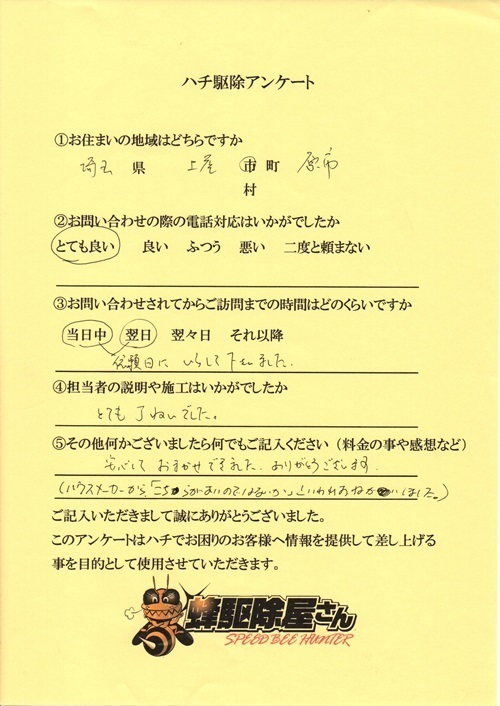 ハチ駆除アンケート
①お住まいの地域はどちらですか
埼玉 県 上尾 市 町 原市
村
②お問い合わせの際の電話対応はいかがでしたか
とても良い 良い ふつう 悪い 二度と頼まない
③お問い合わせされてからご訪問までの時間はどのくらいですか
当日中 翌日 翌々日 それ以降
依頼日に いらして下さいました.
④担当者の説明や施工はいかがでしたか
とても ていねいでした。
⑤その他何かございましたら何でもご記入ください（料金の事や感想など）
安心して おまかせできました. ありがとうございます.
(ハウスメーカーから、こちらがよいのではないかといわれ
ご記入いただきまして誠にありがとうございました。
このアンケートはハチでお困りのお客様へ情報を提供して差し上げる
事を目的として使用させていただきます。
蜂駆除屋さん
SPEED BEE HUNTER